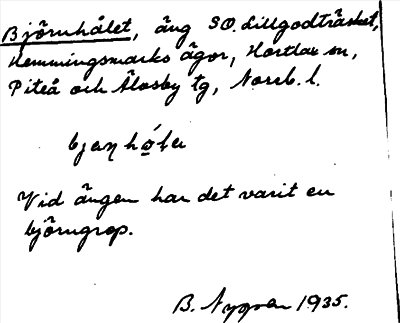 Björnhålet, äng SO. Lillgodträsket,
Hemmingsmarks ägor, Hortlax sn,
Piteå och Älvsby tg, Norrb. l.
Vid ängen har det varit en
björngrop.
B. Nygren 1935.